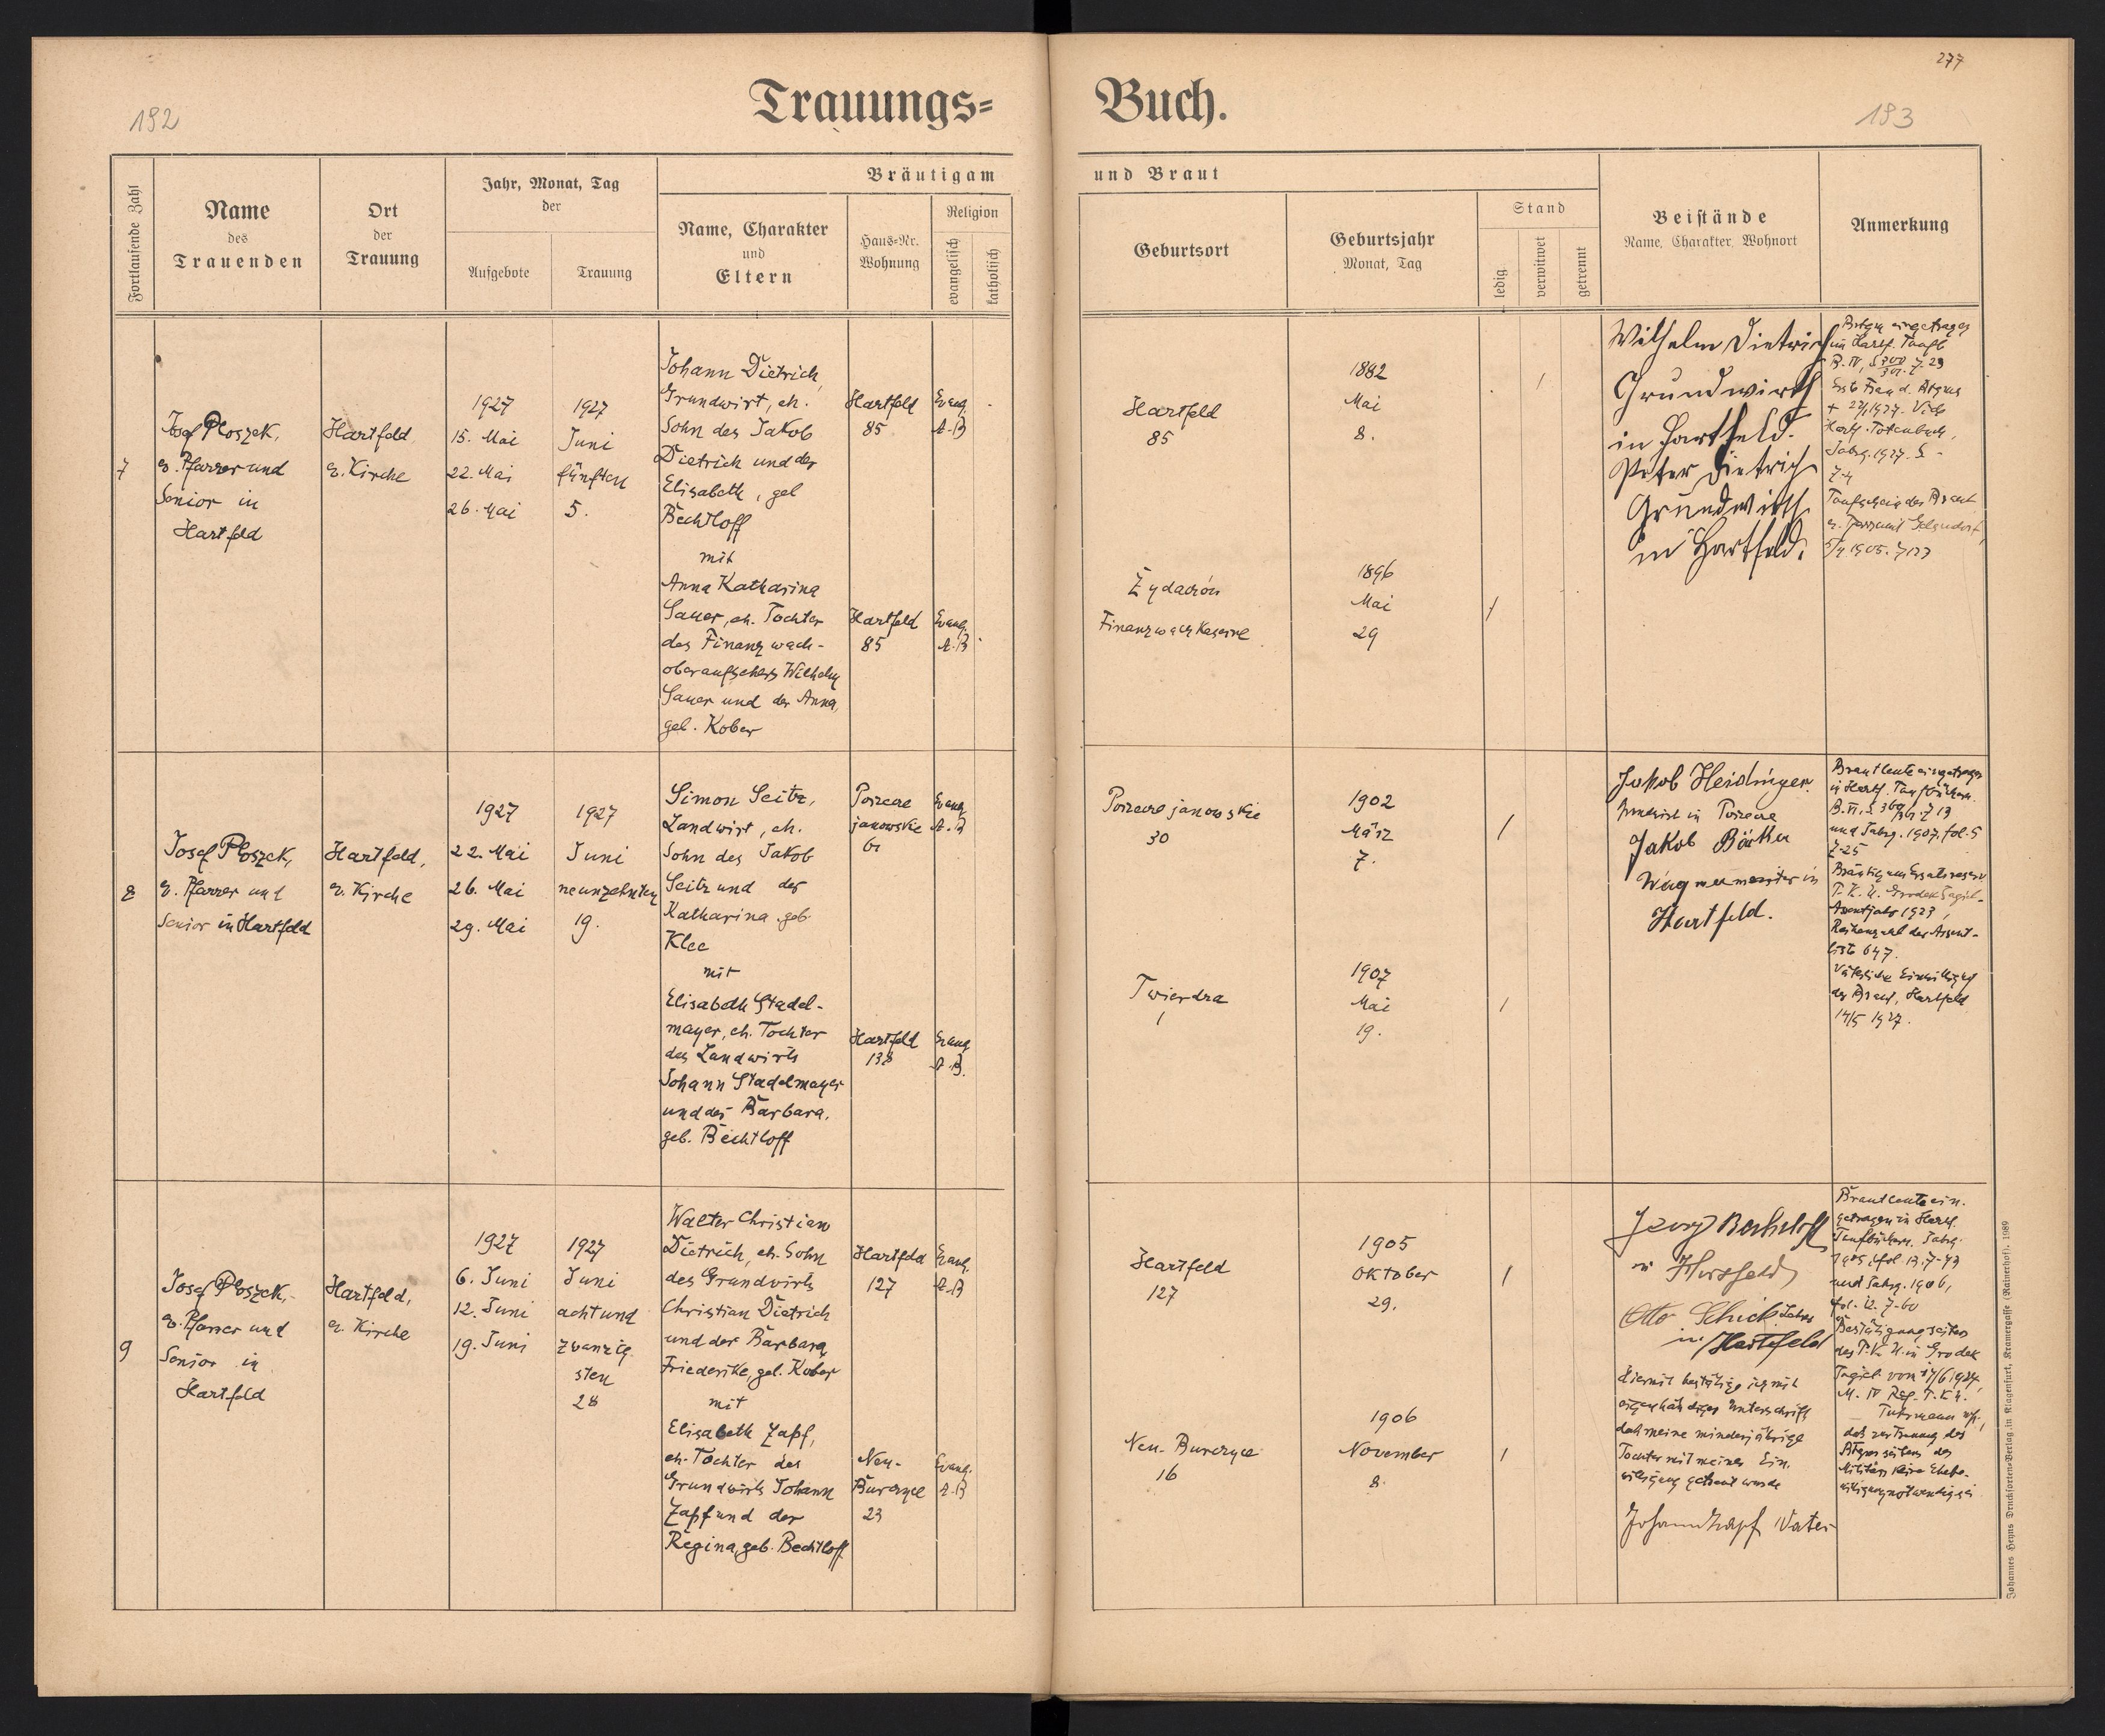 277
192
193
Trauungs=
Buch.
Fortlaufende Zahl
Name
des
Trauenden
Ort
der
Trauung
Jahr, Monat, Tag
der
Aufgebote
Trauung
Bräutigam
Name, Charakter
und
Eltern
Haus=Nr.
Wohnung
Religion
evangelisch
katholisch
und Braut
Geburtsort
Geburtsjahr
Monat, Tag
Stand
ledig
verwitwet
getrennt
Beistände
Name, Charakter, Wohnort
Anmerkung
7
Josef Ploszek,
ev. Pfarrer und
Senior in
Hartfeld
Hartfeld
ev. Kirche
1927
15. Mai
22. Mai
26. Mai
1927
Juni
fünften
5.
Johann Dietrich,
Grundwirt, eh.
Sohn des Jakob
Dietrich und der
Elisabeth, geb
Bechtloff
mit
Anna Katharina
Sauer, eh. Tochter
des Finanzwach-
oberaufsehers Wilhelm
Sauer und der Anna,
geb. Kober
Hartfeld
85
Evang.
A.B
Hartfeld
85
Evang.
A.B
Hartfeld
85
1882
Mai
8.
Finanzwachkaserne
1896
Mai
29
Wilhelm Dietrich
Grundwirth
in Hartfeld.
Peter Dietrich
Grundwirth
in Hartfeld.
im Hartf. Taufb
Hartf. Totenbuch,
Jahrg. 1927. S -
Z-4
Taufschein der Braut
8
Josef Ploszek,
ev. Pfarrer und
Senior in Hartfeld
Hartfeld,
ev. Kirche
1927
22. Mai
26. Mai
29. Mai
1927
Juni
neunzehnten
19.
Simon Seitz,
Landwirt, eh.
Sohn des Jakob
Seitz und der
Katharina geb.
Klee
mit
Elisabeth Stadel-
mayer, eh. Tochter
des Landwirts
Johann Stadelmayer
und der Barbara,
geb. Bechtloff
Porzecze
janowskie
61
Evang
A.B
Hartfeld
138
Evang
A.B.
Porzecze janowskie
30
1902
März
7.
Twierdza
1
1907
Mai
19.
Jakob Heidinger.
in Porzecze
Jakob
Wagnermeister in
Hartfeld.
Brautleute eingetragen
in Hartf. Taufbüchern.
und Jahrg. 1907, fol. 5
Z-25
Assentjahr 1923,
Reihenzahl der Assent-
liste 647.
Väterliche Einwilligung
der Braut, Hartfeld
14/5 1927.
9
Josef Ploszek,
ev. Pfarrer und
Senior in
Hartfeld
Hartfeld,
ev. Kirche
1927
6. Juni
12. Juni
19. Juni
1927
Juni
achtund
zwanzig
sten
28
Walter Christian
Dietrich, eh. Sohn
des Grundwirts
Christian Dietrich
und der Barbara
Friederike, geb. Kober
mit
Elisabeth Zapf,
eh. Tochter des
Grundwirts Johann
Zapf und der
Regina, geb. Bechtloff
Hartfeld
127
Evang.
A.B
Neu-
Burczyce
23
Evang.
A.B
Hartfeld
127
1905
Oktober
29.
Neu-Burczyce
16
1906
November
8.
Georg Bechtloff
in Hartfeld
Otto Schick
in Hartfeld
Hiermit bestätige ich mit
eigenhändiger Unterschrift
daß meine minderjährige
Tochter mit meiner Ein.
willigung getraut wurde
Johann Zapf Vater
Brautleute ein.
getragen in Hartf.
Taufbüchern. Jahrg.
1905, fol 13. Z-43
und Jahrg. 1906,
fol. 12. Z-60
Bestätigung seitens
des P.K.U. in Grodek
daß zur Trauung des
seitens des
Militärs keine Ehebe-
willigung notwendig sei
Johannes Heyns Drucksorten=Verlag in Klagenfurt, Kramergasse (Rainerhof). 1989